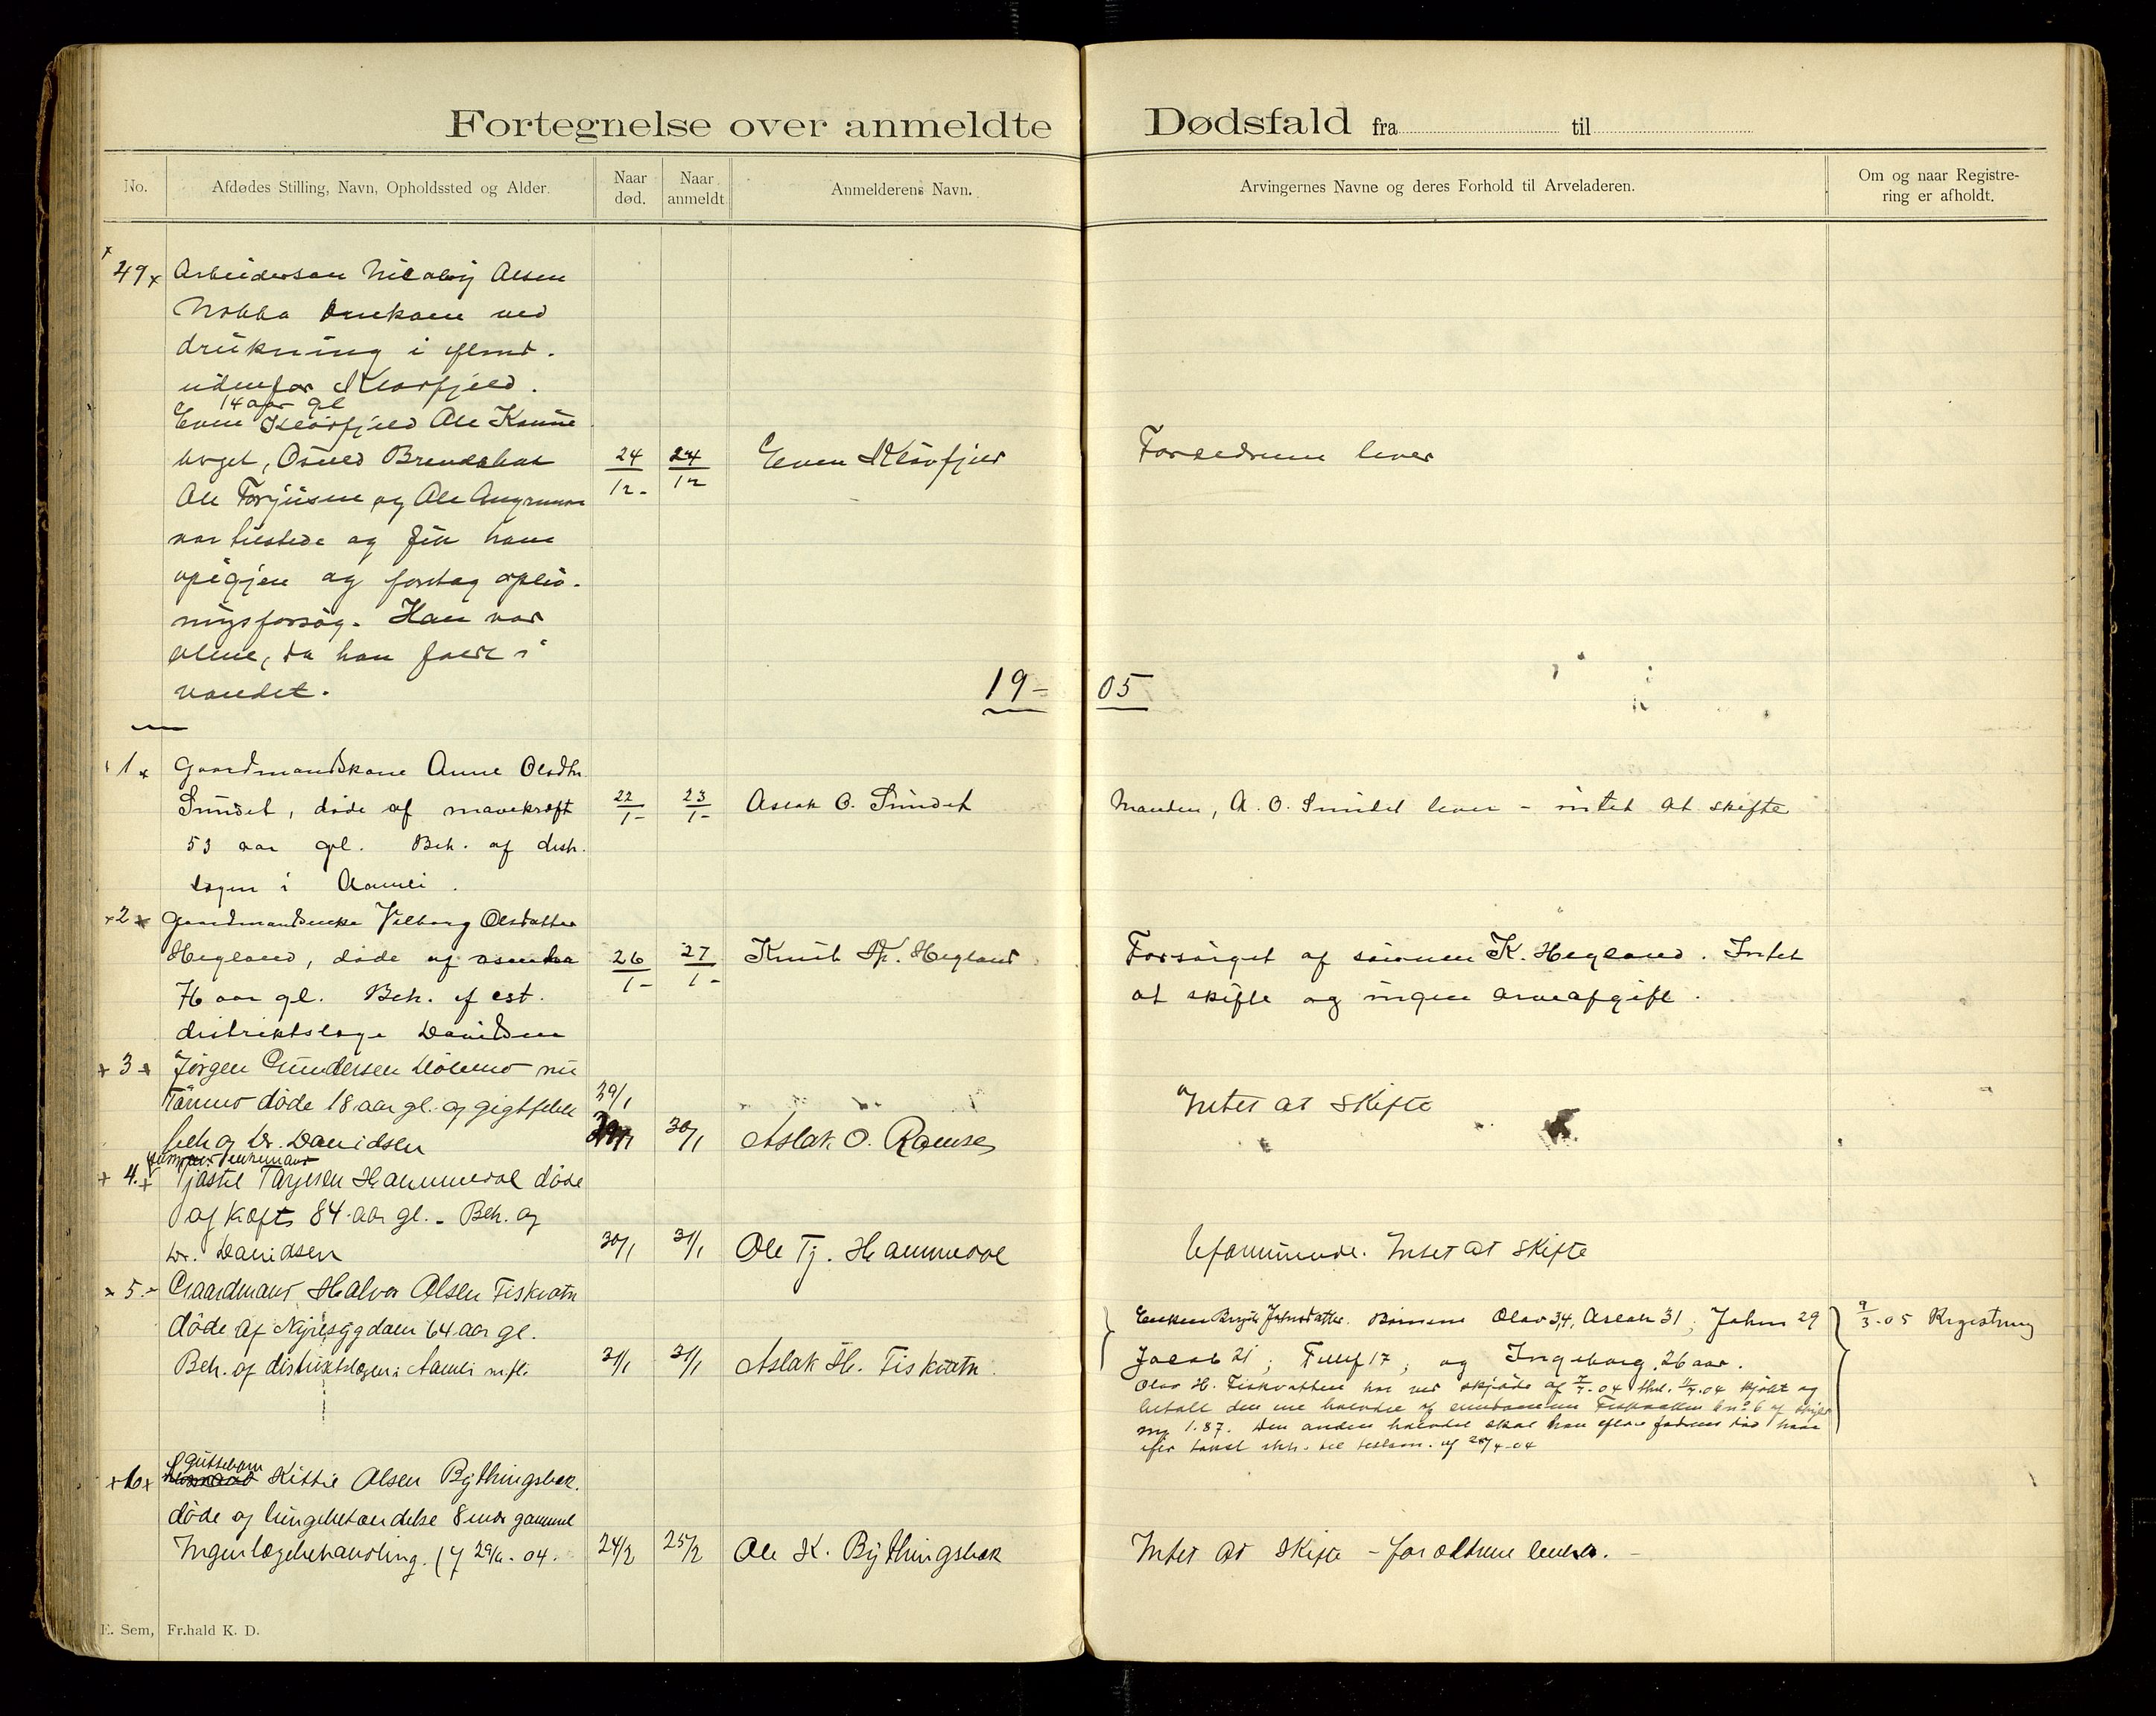 Fortegnelse over anmeldte Dødsfald fra til
No.
Afdødes Stilling, Navn, Opholdssted og Alder.
Naar død.
Naar anmeldt.
Anmelderens Navn.
Arvingernes Navne og deres Forhold til Arveladeren.
Om og naar Registre-
ring er afholdt.
49 Arbeidersøn Nicolay Olsen
omkom ved
drukning i
udenfor Kløvfjeld.
14 aar gl
Even Kløvfjeld Ole
Ole Torjusen og Ole
var tilstede og fik ham
opigjen og foretog opliv-
ningsforsøg. Han var
alene, da han faldt i
vandet.
24/12 - 24/12 Even Kløvfjeld
Forældrene lever
19 - 05
1 Gaardmandskone Anne Olsdtr.
Sundet, døde af mavekræft
53 aar gl. Beh. af distr.
lægen i Aamli.
22/1 - 23/1 - Aslak O. Sundet
Manden, A. O. Sundet lever - intet at skifte
2 Gaardmandsenke Vilborg Olsdatter
Hegland, døde af
76 aar gl. Beh. af est.
distriktslæge Davidsen
26/1 - 27/1 - Knut K. Hegland
Forsørget af sønnen K. Hegland. Intet
at skifte og ingen arveafgift.
3 Jørgen Gundersen nu
døde 18 aar gl. af gigtfeber
beh af Dr. Davidsen
29/1 30/1 Aslak O. Ramse
Intet at skifte
4. Tjøstel Tarjesen Hammerdal døde
af kræft 84 aar gl. - Beh. af
Dr. Davidsen
30/1 31/1 Ole Tj. Hammerdal
Uformuende. Intet at skifte
5 Gaardmand Halvor Olsen Fiskvatn
døde af Nyresygdom 64 aar gl.
Beh. af distriktslægen i Aamli m. fl.
31/1 31/1 Aslak H. Fiskvatn
Enken Birgit Johnsdatter. Børnene Olav 34, Aslak 31, John 29
Jacob 21, Tellef 17, og Ingeborg, 26 aar.
Olav H. Fiskvatten har ved skjøde af thl. 04 kjøbt og
betalt den ene halvdel af eiendommen Fiskvatten bno 6 af skyld
my 1.87. Den anden halvdel skal han efter faderens død have
9/3 - 05 Registrering
6 guttebarn Kittil Olsen Bytingsbæk.
døde af lungebetændelse 8 mdr gammel
Ingen lægebehandling. (f 29/6 - 04.
24/2 25/2 Ole K. Bytingsbæk
Intet at skifte - forældrene lever. -
E. Sem, Fr.hald K. D.